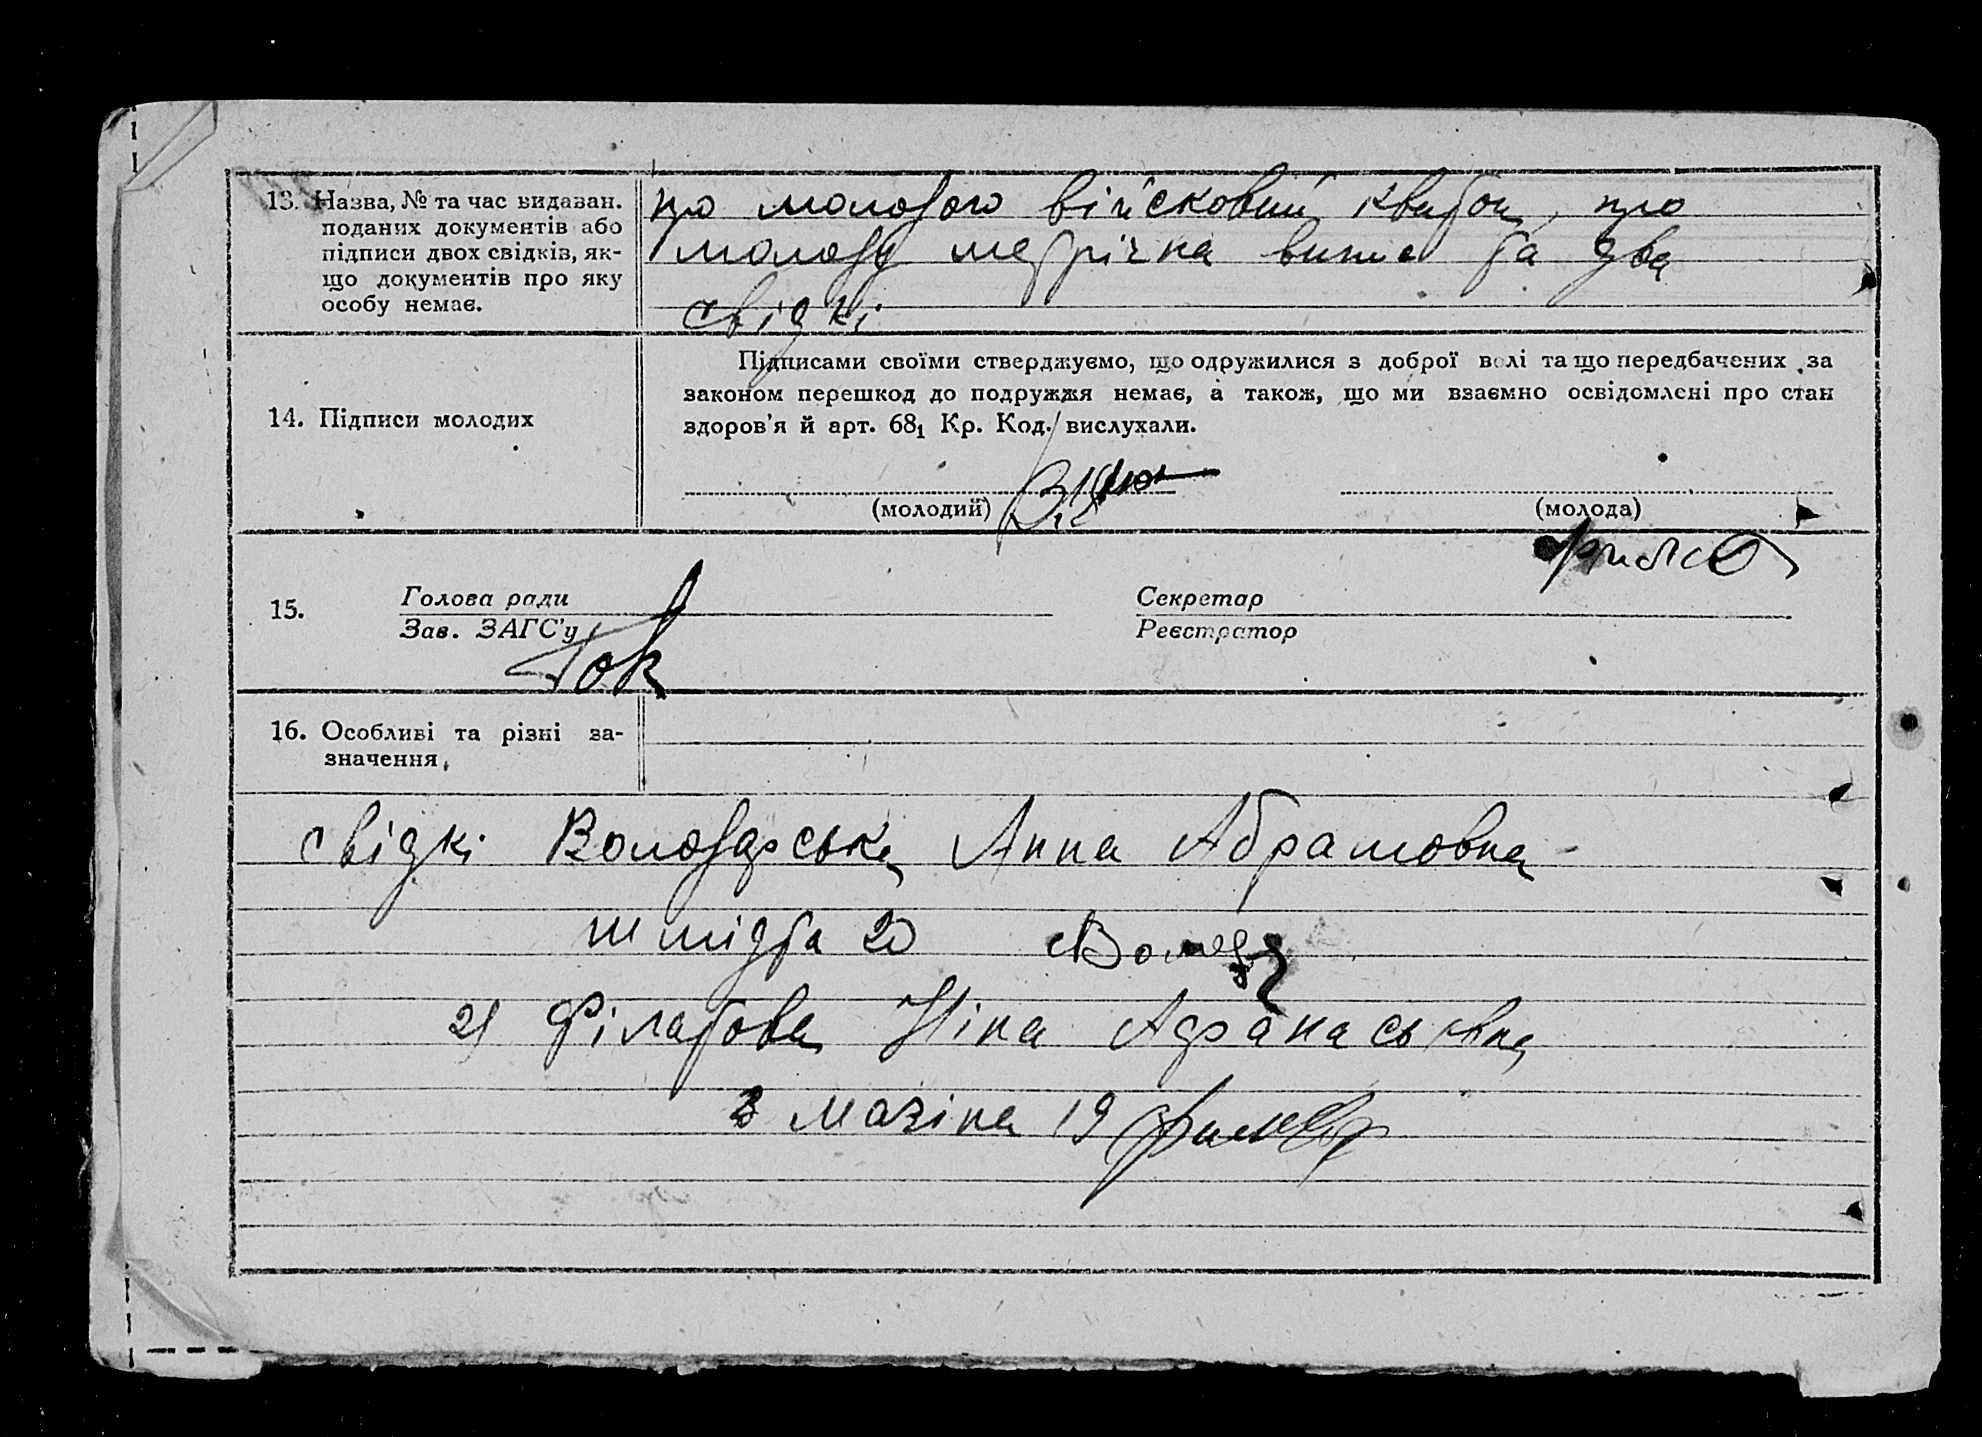 13. Назва, № та час видаван.
поданих документів або
підписи двох свідків, як-
що документів про яку
особу немає.
про молодого військовий квиток, про
молоду метрічна випис та два
свідкі
14. Підписи молодих
Підписами своїми стверджуємо, що одружилися з доброї волі та що передбачених за
законом перешкод до подружжя немає, а також, що ми взаємно освідомлені про стан
здоров'я й арт. 68₁ Кр. Код. вислухали.
(молодий)
(молода)
15.
Голова ради
Зав. ЗАГС'у
Секретар
Реєстратор
16. Особливі та різні за-
значення
свідкі Володарська Анна Абрамовна
шмідта 20
2) Філатова Ніна Афанасьевна
3 Мазіна 19